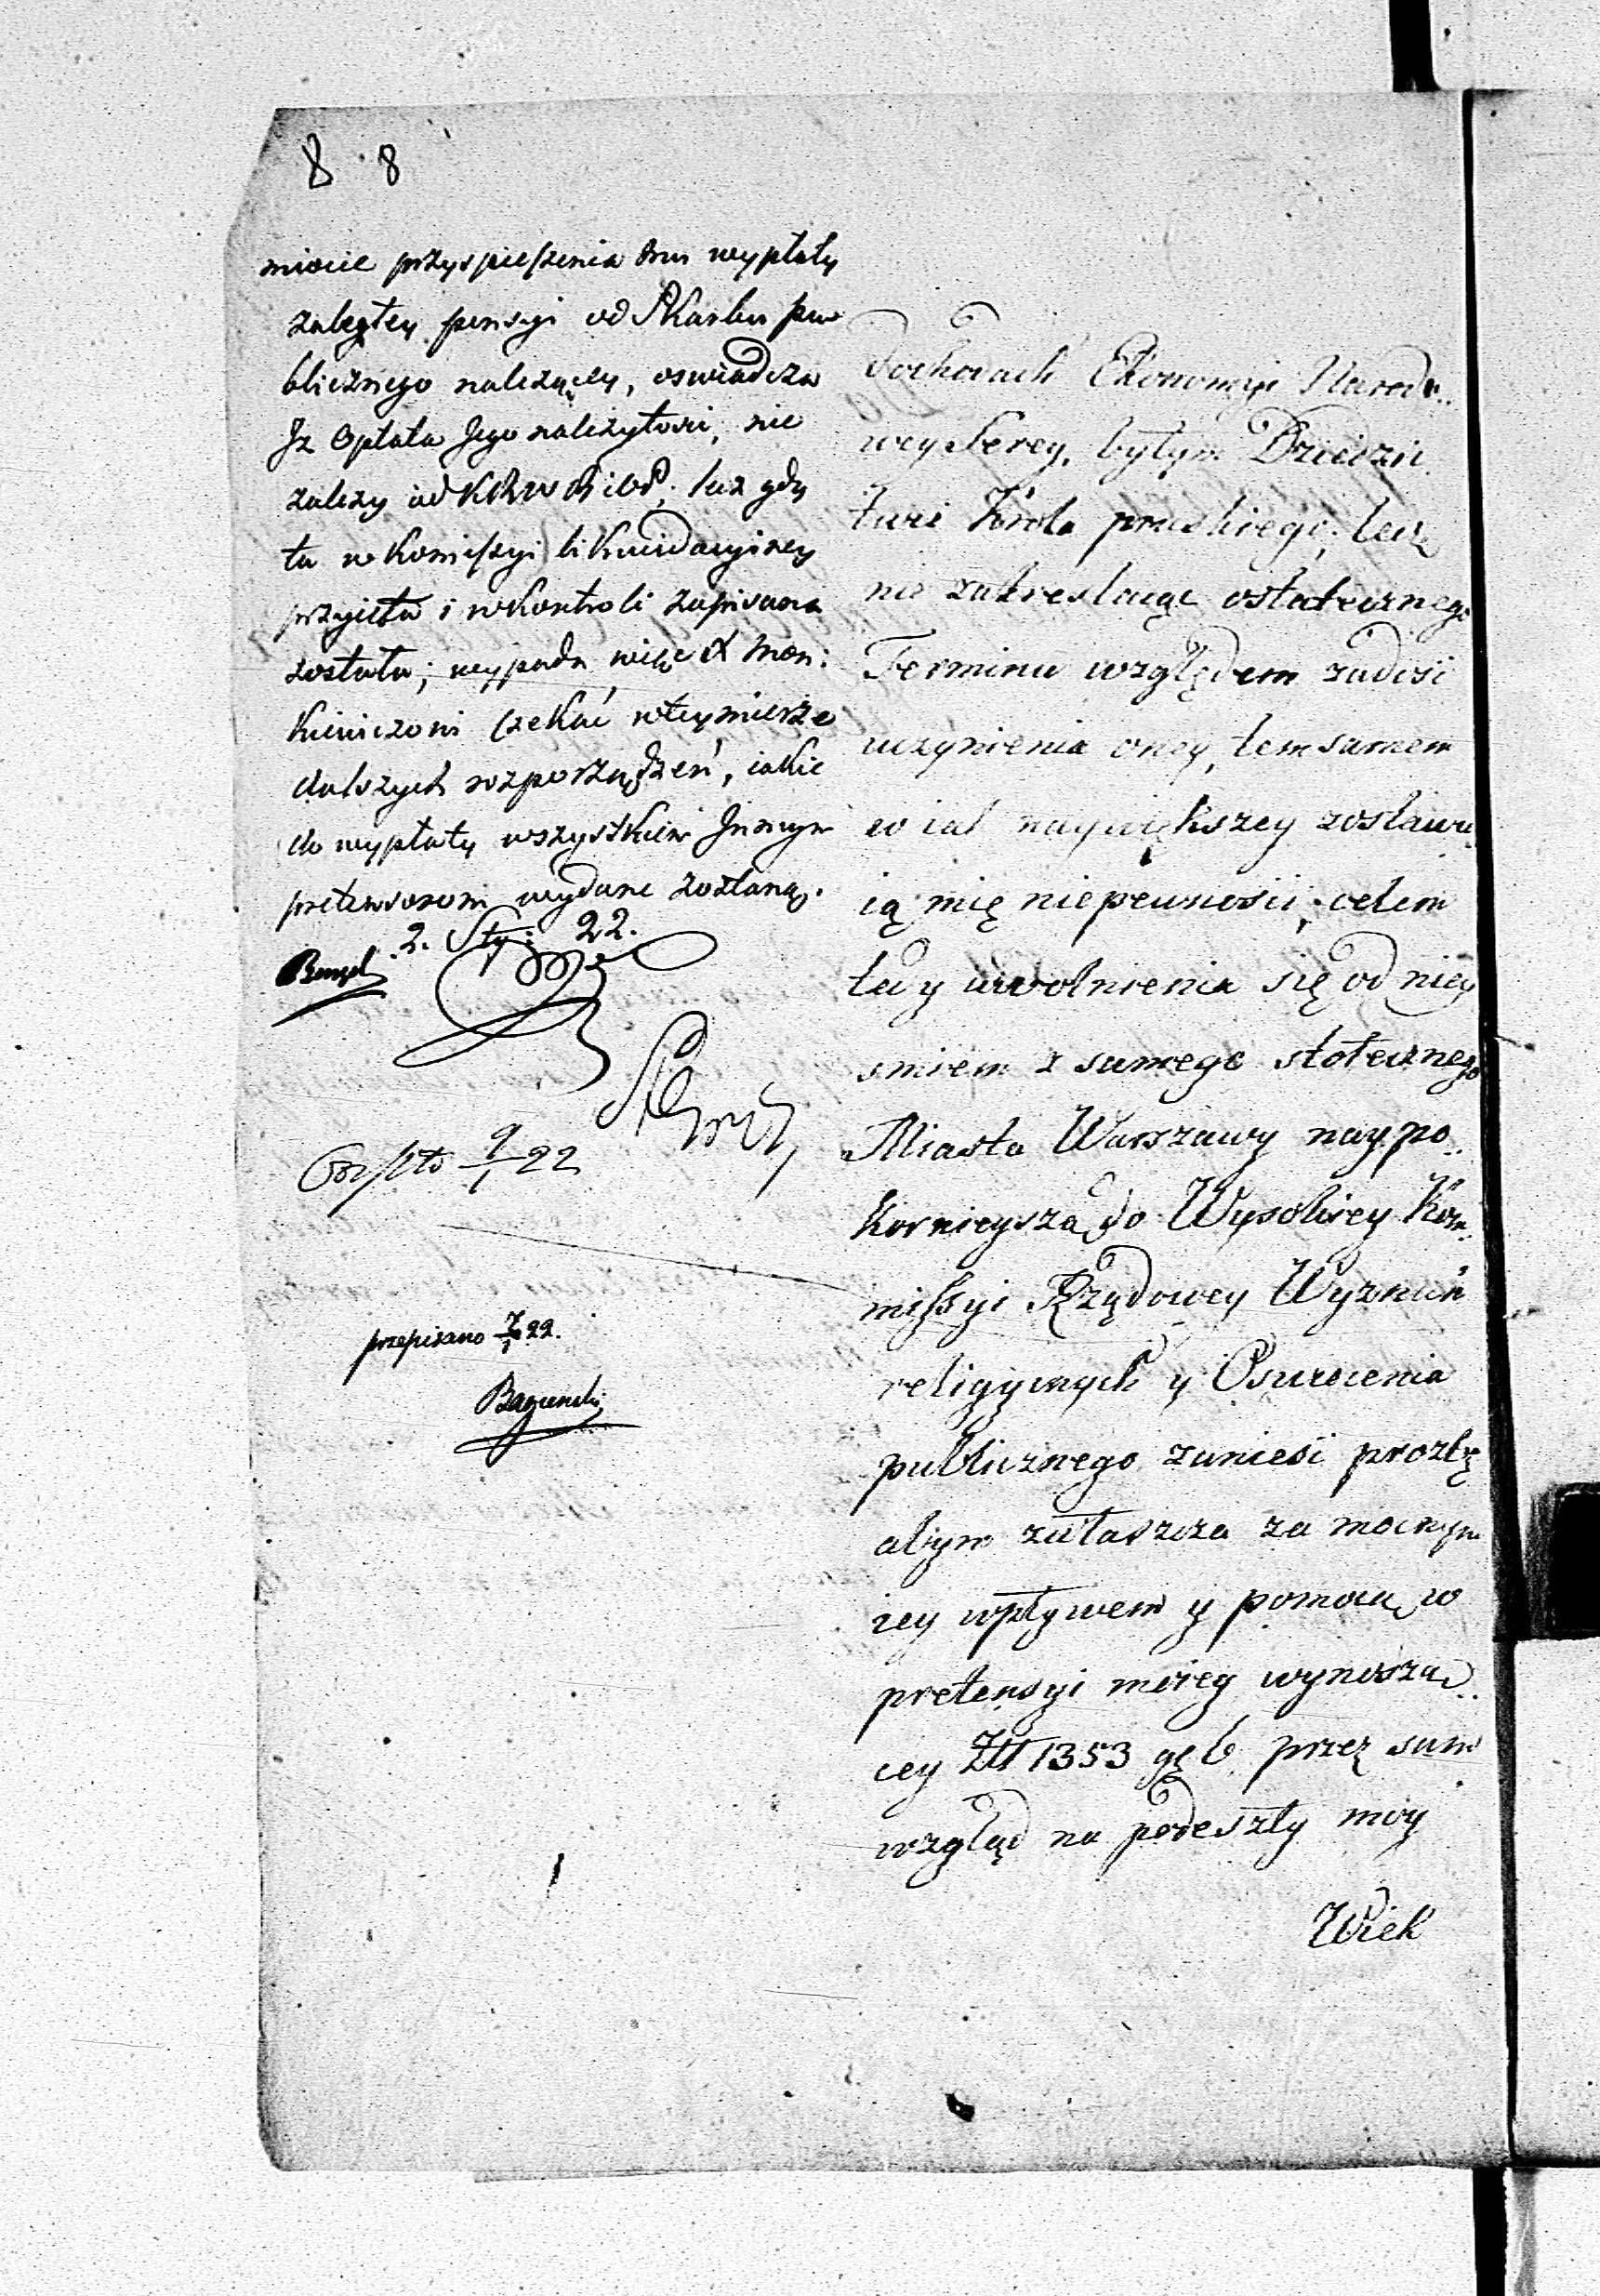 8 8
miocie przyspieszenia Onu wypłaty
zaległey pensyi od Skarbu pu
blicznego należącey, oswiadcza
Jz Opłata Jego należytosci, nie
zależy od KRWRiOP. lecz gdy
ta w Komissyi likwidacyiney
przyięta i w Kontroli zapisana
została; wypada więc X Mon:
kiewiczowi czekać w tey mierze
dalszych rozporządzeń, iakie
do wypłaty wszystkim Jnnym
pretensorom wydane zostaną.
2. Sty: 22.
przepisano 7/1 22.
dochodach Ekonomyi Narodo..
wey Serey, byłym Dziedzic
twie Króla pruskiego; lecz
nie zakreslaiąc ostatecznego
Terminu względem zadosi
uczynienia oney, tem samem
w iak naywiększey zostawu
ią mię niepewnosci; celem
tedy uwolnienia się od niey
smiem z samego stołecznego
Miasta Warszawy naypo..
kornieyszą do Wysokiey Kom..
missyi Rządowey Wyznań
religiynych y Oswiecenia
publicznego zaniesi prozbę
abym zwłaszcza za mocnym
iey wpływem y pomocą w
pretensyi moiey wynoszą..
cey Złł 1353 gę 6. przez sam
wzgląd na podeszły móy
Wiek